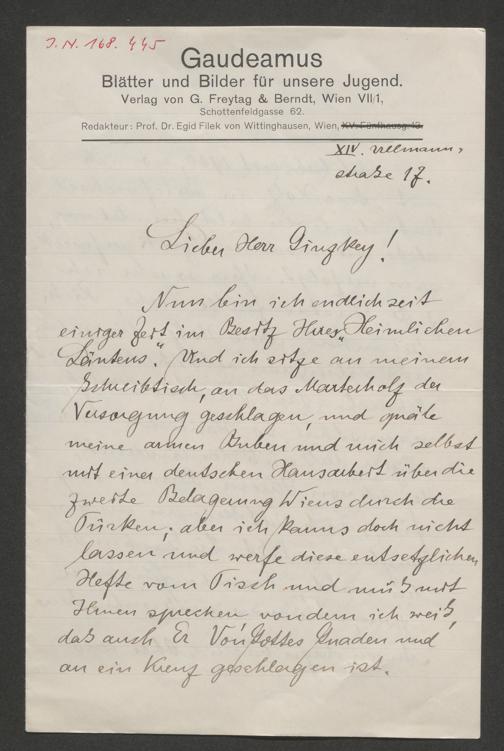 J. N. 168.445
Gaudeamus
Blätter und Bilder für unsere Jugend.
Verlag von G. Freytag & Berndt, Wien VII/1,
Schottenfeldgasse 62.
Redakteur: Prof. Dr. Egid Filek von Wittinghausen, Wien, XV. Fünfhausg. 13.
XIV. Ullmann-
straße 17.
Lieber Herr Ginzkey!
Nun bin ich endlich seit
einiger Zeit im Besitz Ihres „Heimlichen
Läutens“. Und ich sitze an meinem
Schreibtisch, an das Marterholz der
Versorgung geschlagen, und quäle
meine armen Buben und mich selbst
mit einer deutschen Hausarbeit über die
zweite Belagerung Wiens durch die
Türken; aber ich kanns doch nicht
lassen und werfe diese entsetzlichen
Hefte vom Tisch und muß mit
Ihnen sprechen, von dem ich weiß,
daß auch Er Von Gottes Gnaden und
an ein Kreuz geschlagen ist.